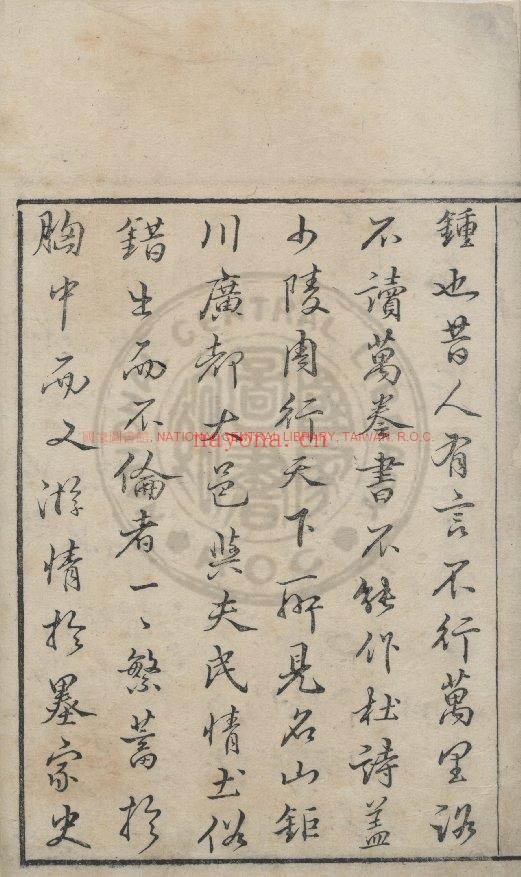 鍾也昔人有言不行萬里路
不讀萬卷書不能作杜詩蓋
少陵周行天下所見名山鉅
川廣都大邑與夫民情土俗
錯生而不倫者一〻繁蓄於
胸中而又游情於墨家史
國家圖書館, NATIONAL CENTRAL LIBRARY, TAIWAN, R.O.C.
nayona.cn